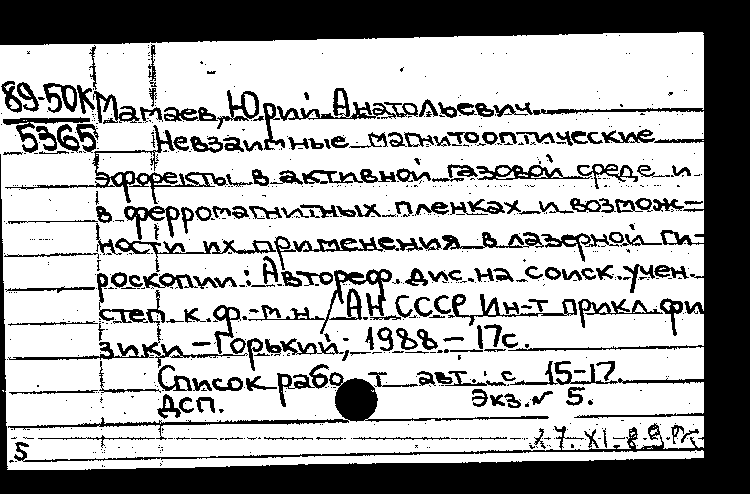 89-50К Мамаев, Юрий Анатольевич
5365 Невзаимные магнитооптические
эффекты в активной газовой среде и
в ферромагнитных пленках и возмож-
ности их применения в лазерной ги-
роскопии: Автореф. дис. на соиск. учен.
степ. к. ф.-м.н. / АН СССР, Ин-т прикл. фи
зики - Горький; 1988 - 17с.
Список работ авт.: с. 15-17.
ДСП. Экз.N 5.
27.XI.89
5